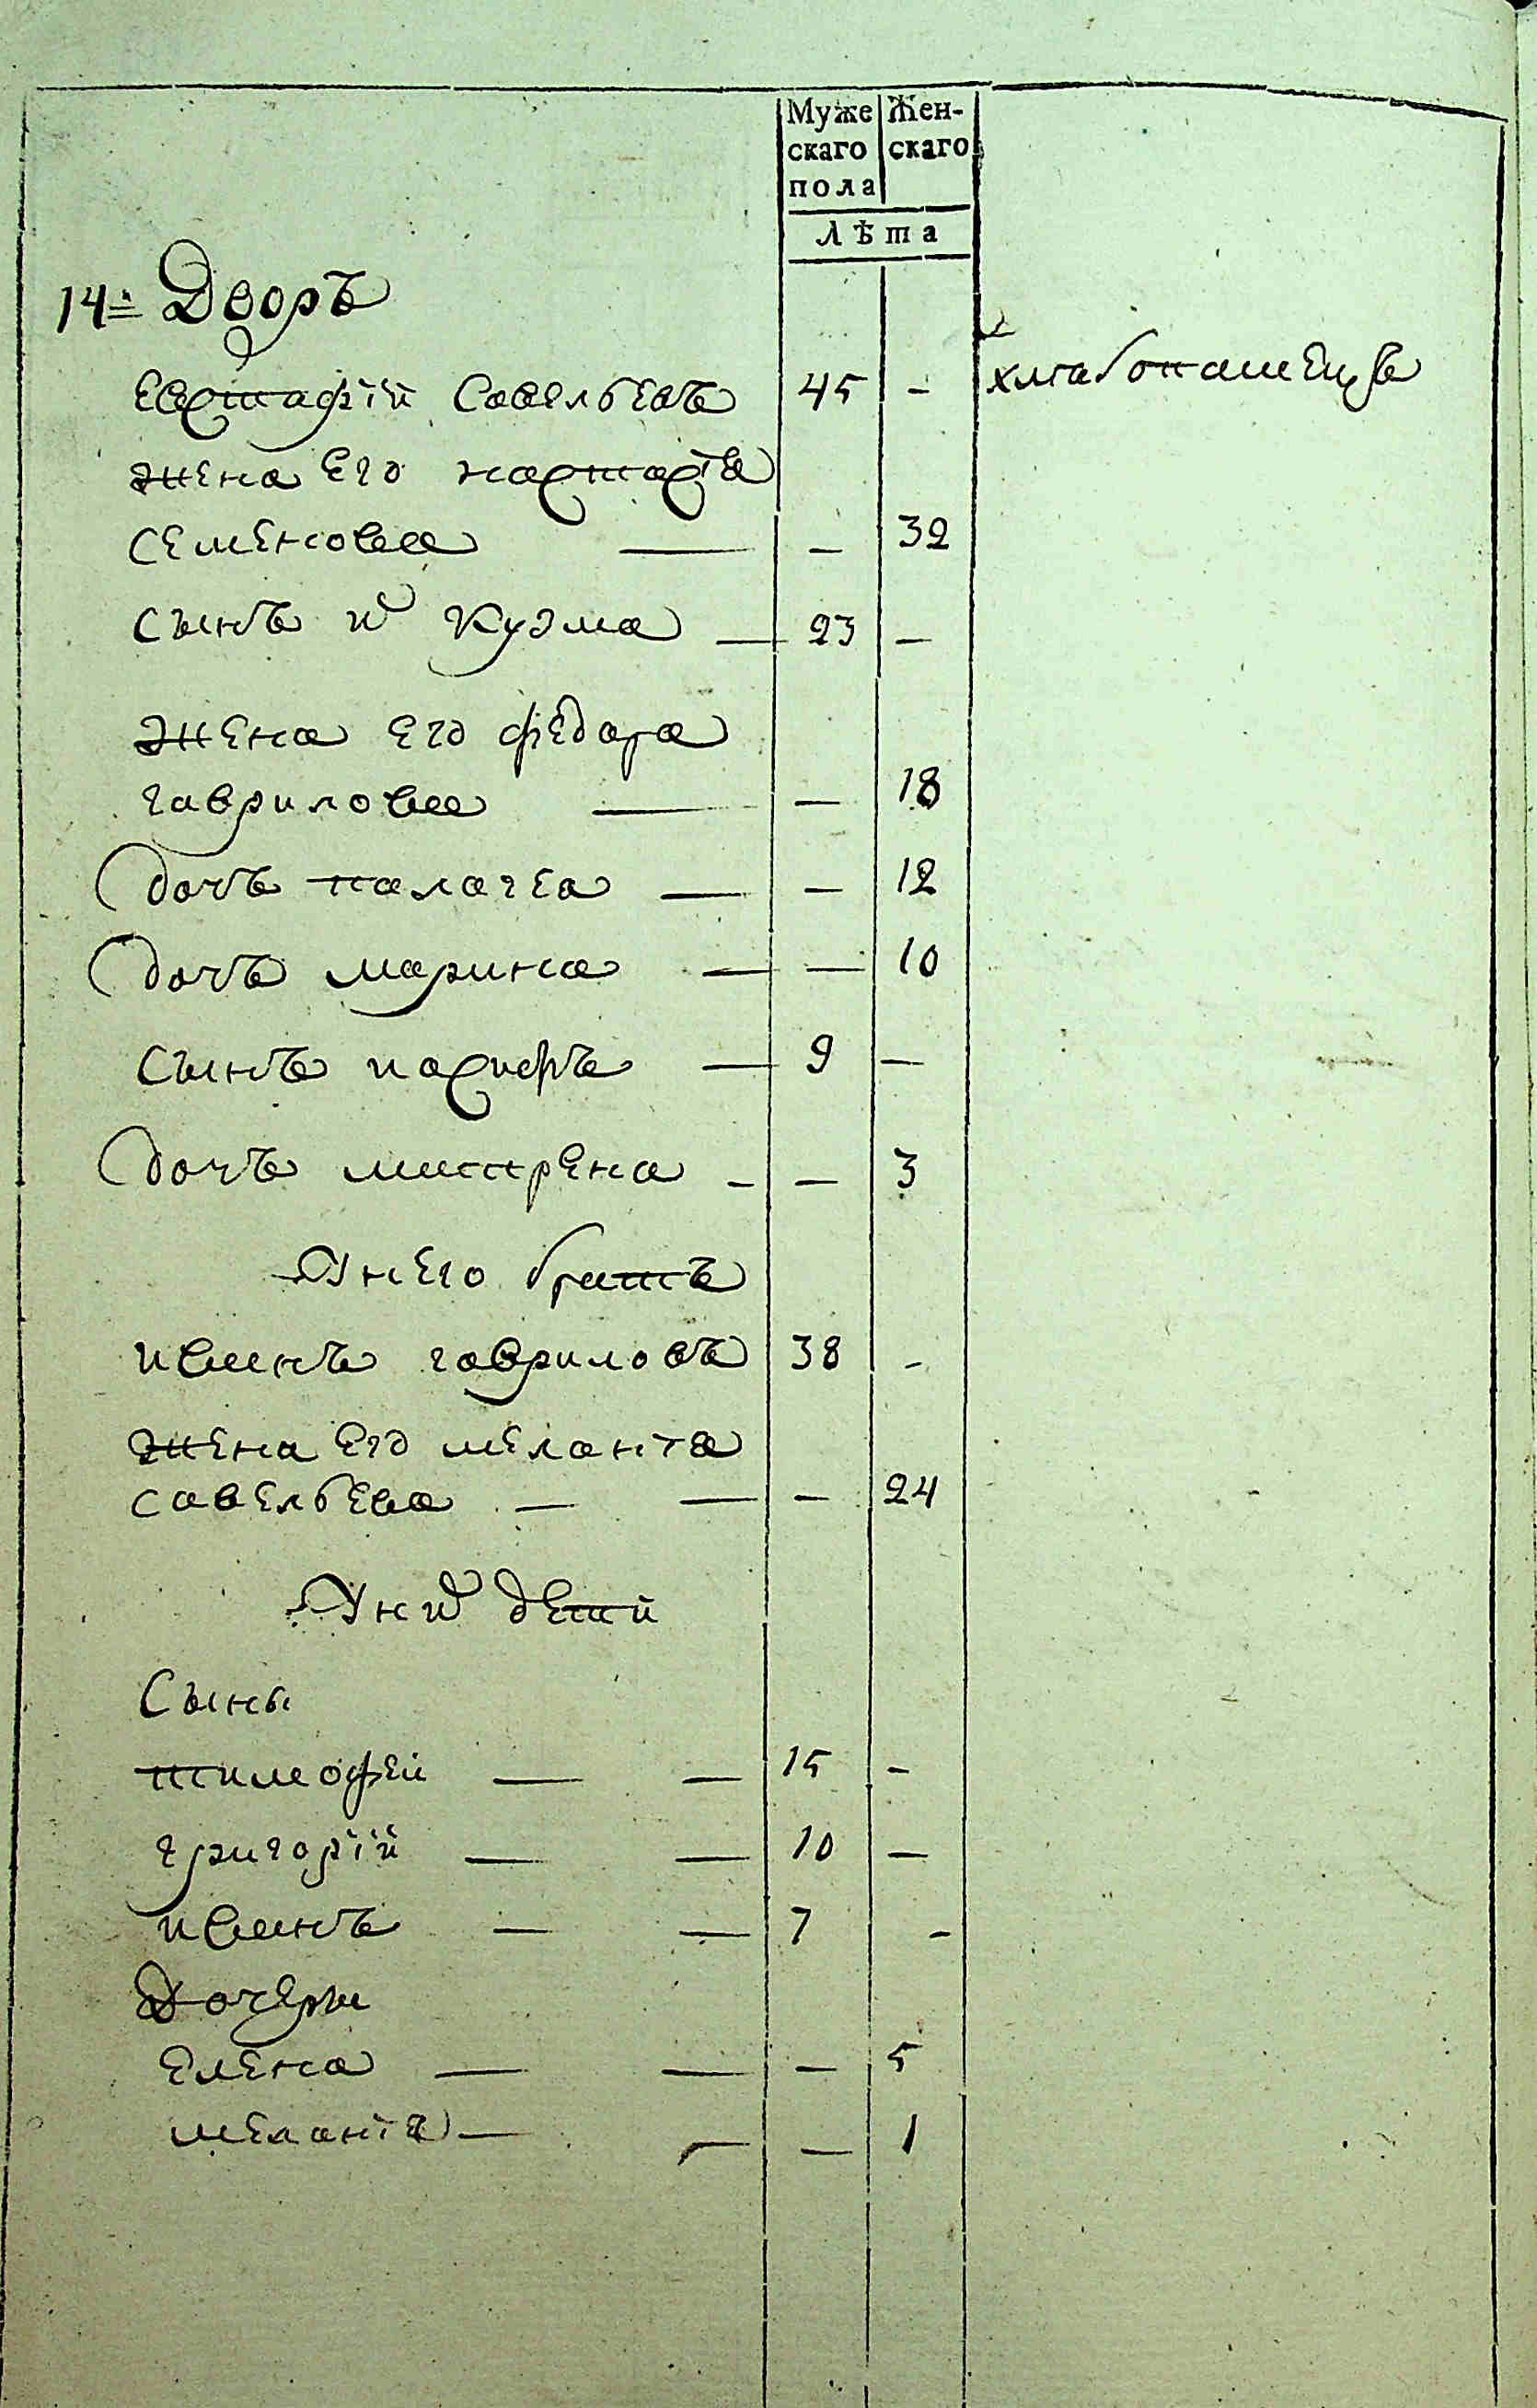 Муже Жен-
скаго скаго
пола
лѣта
14: Дворъ
Евстафій Савельевъ 45 - хлѣбопашецъ
жена его настасія
семенова — — 32
сынъ их кузма — 23 —
жена его федора
гаврилова — — 18
дочь палагеа — — 12
дочь марина — — 10
сынъ — 9 —
дочь матрена - — 3
У него братъ
иванъ гавриловъ 38 -
жена его меланія
савельева — — - 24
У них детй
Сыны
тимофей — — 15 -
григорій — — 10 —
иванъ — — 7 -
Дочери
елена — — — 5
меланія — — — 1